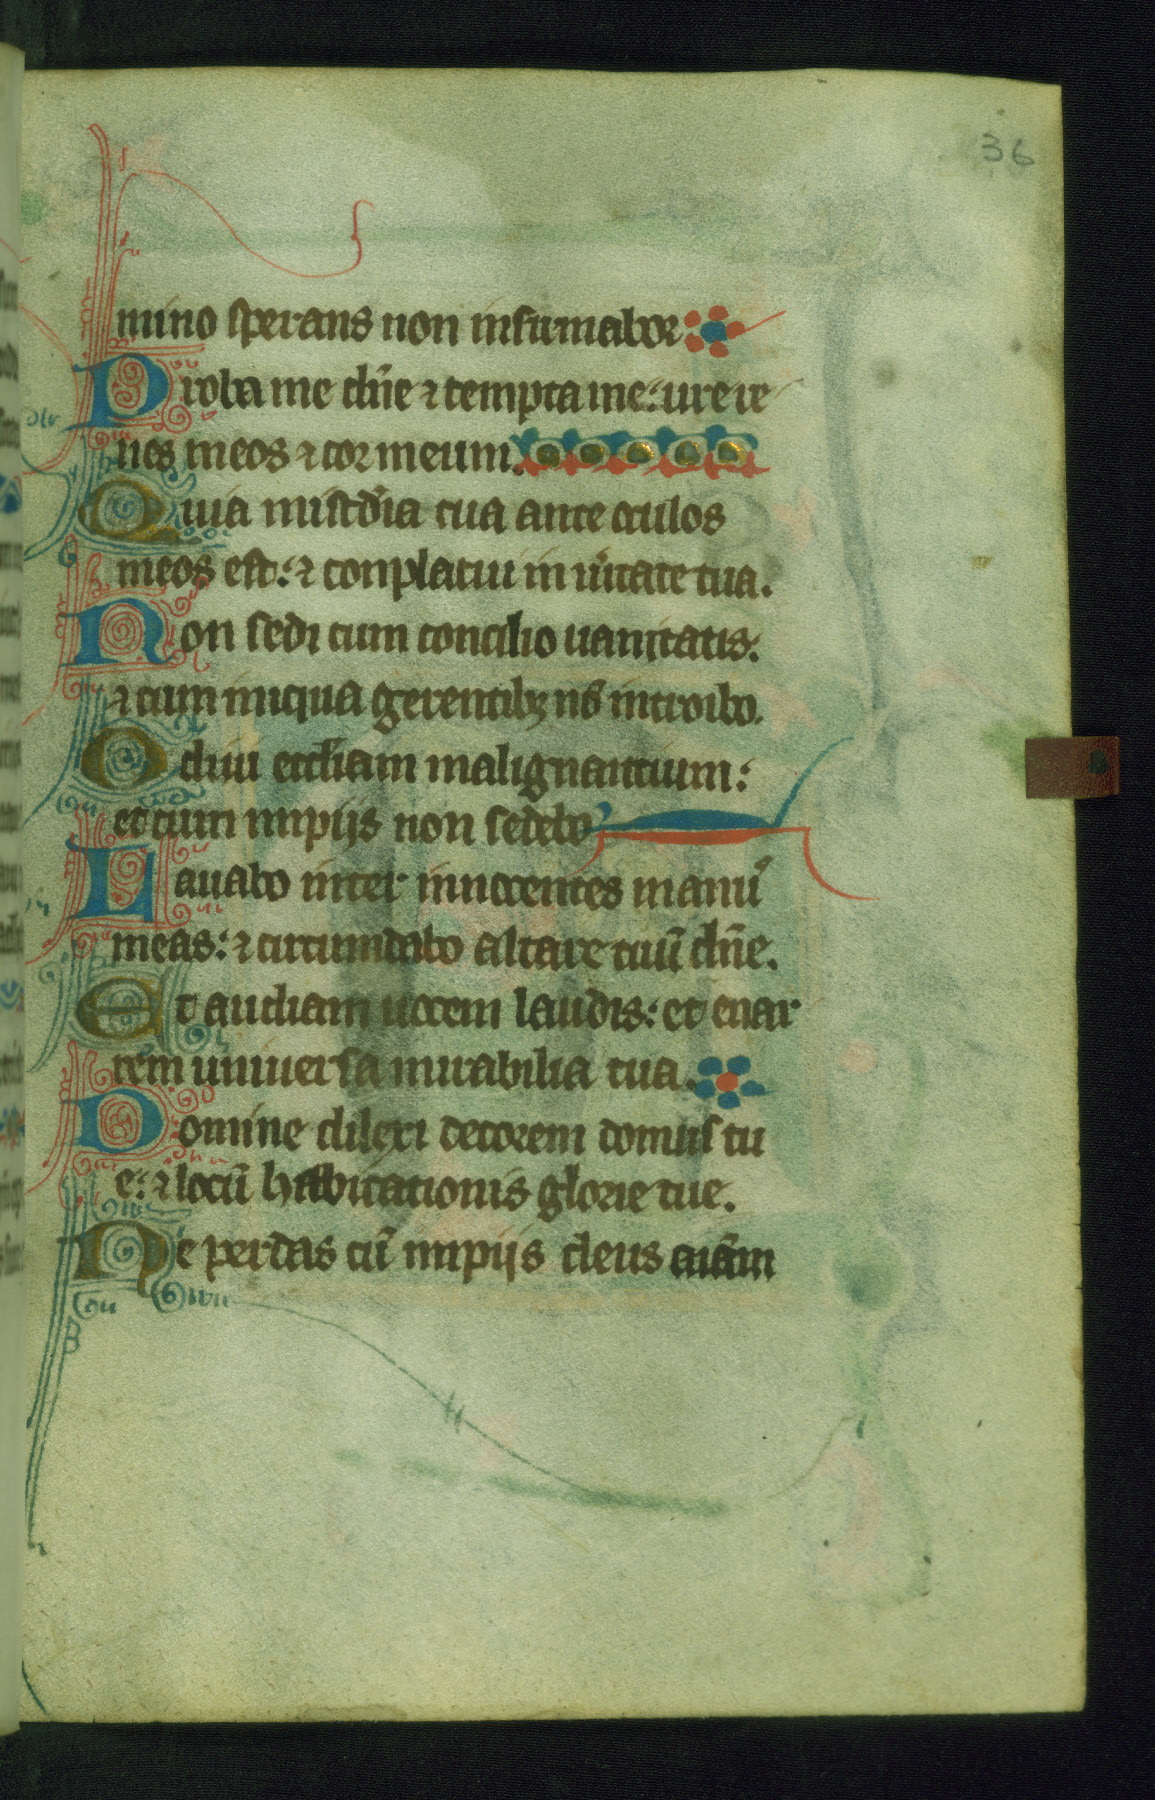 36
mino sperans non infirmabor
Proba me dñe ⁊ tempta me: ure re
nes meos ⁊ cor meum.
Quia miscdia tua ante oculos
meos est: ⁊ conplacui in uitate tua.
Non sedi cum concilio uanitatis:
⁊ cum iniqua gerentibꝫ nō introibo.
Odiui eccliam malignantium:
et cum impijs non sedebo
Lauabo inter innocentes manu
meas: ⁊ circumdabo altare tuū dñe.
Et audiam uocem laudis: et enar
rem uniuersa mirabilia tua.
Domine dilexi decorem domus tu
e: ⁊ locū habitationis glorie tue.
Ne perdas cū impijs deus aiam